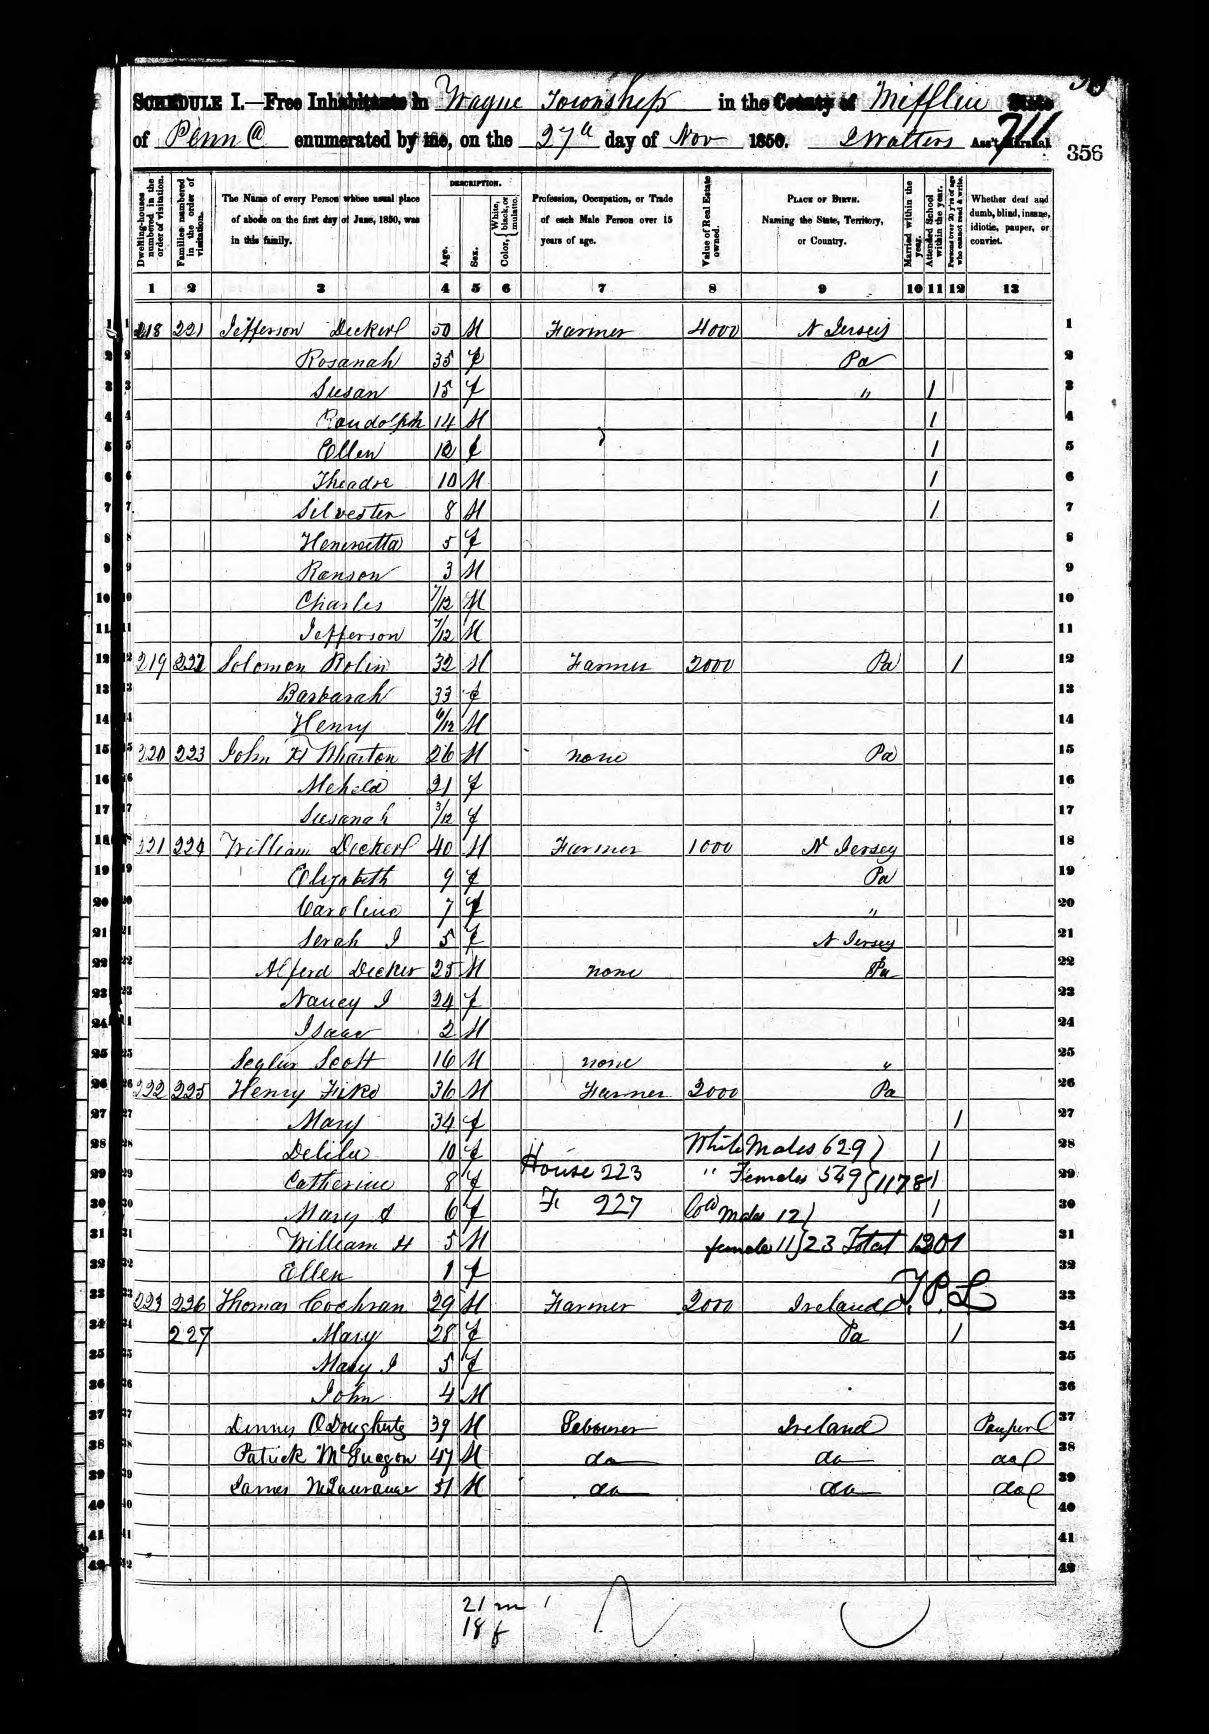 SCHEDULE I.—Free Inhabitants in Wayne Township in the County of Mifflin State
of Penn a enumerated by me, on the 27th day of Nov 1850. J Walters Ass't Marshal.
711
356
Dwelling-houses numbered in the order of visitation.
Families numbered in the order of visitation.
The Name of every Person whose usual place of abode on the first day of June, 1850, was in this family.
DESCRIPTION.
Age.
Sex.
Color, White, black, or mulatto.
Profession, Occupation, or Trade of each Male Person over 15 years of age.
Value of Real Estate owned.
PLACE OF BIRTH. Naming the State, Territory, or Country.
Married within the year.
Attended School within the year.
Persons over 20 y'rs of age who cannot read & write.
Whether deaf and dumb, blind, insane, idiotic, pauper, or convict.
1 2 3 4 5 6 7 8 9 10 11 12 13
1 218 221 Jefferson Decker 50 M Farmer 4000 N Jersey 1
2 Rosanah 35 f Pa 2
3 Susan 15 f " 1 3
4 Randolph 14 M 1 4
5 Ellen 12 f 1 5
6 Theadre 10 M 1 6
7 Silvester 8 M 1 7
8 Henrietta 5 f 8
9 Ranson 3 M 9
10 Charles 7/12 M 10
11 Jefferson 7/12 M 11
12 219 222 Solomon Rolin 32 M Farmer 2000 Pa 1 12
13 Barbarah 33 f 13
14 Henry 6/12 M 14
15 220 223 John H Wharton 26 M none Pa 15
16 21 f 16
17 Susanah 3/12 f 17
18 221 224 William Decker 40 M Farmer 1000 N Jersey 18
19 Elizabeth 9 f Pa 19
20 Caroline 7 f " 20
21 Serah J 5 f N Jersey 21
22 Alferd Decker 25 M none Pa 22
23 Nancy J 24 f 23
24 Isaac 2 M 24
25 Scott 16 M none " 25
26 222 225 Henry Fike 36 M Farmer 2000 Pa 26
27 Mary 34 f 1 27
28 Delila 10 f White Males 629 1 28
29 Catherine 8 f House 223 " Females 549 1178 1 29
30 Mary A 6 f F 227 Cold Males 12 1 30
31 William H 5 M female 11 23 Total 1201 31
32 Ellen 1 f 32
33 223 226 Thomas Cochran 29 M Farmer 2000 Ireland 33
34 227 Mary 28 f Pa 1 34
35 Mary J 5 f 35
36 John 4 M 36
37 Dennis O Doughuty 39 M Labourer Ireland Pauper 37
38 Patrick McGuegon 47 M do do do 38
39 James McLaurance 51 M do do do 39
40 40
41 41
42 42
21 m
18 f